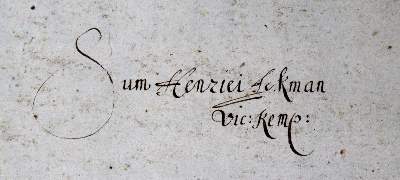 Sum Henrici Ickman
Vic: Kemp: